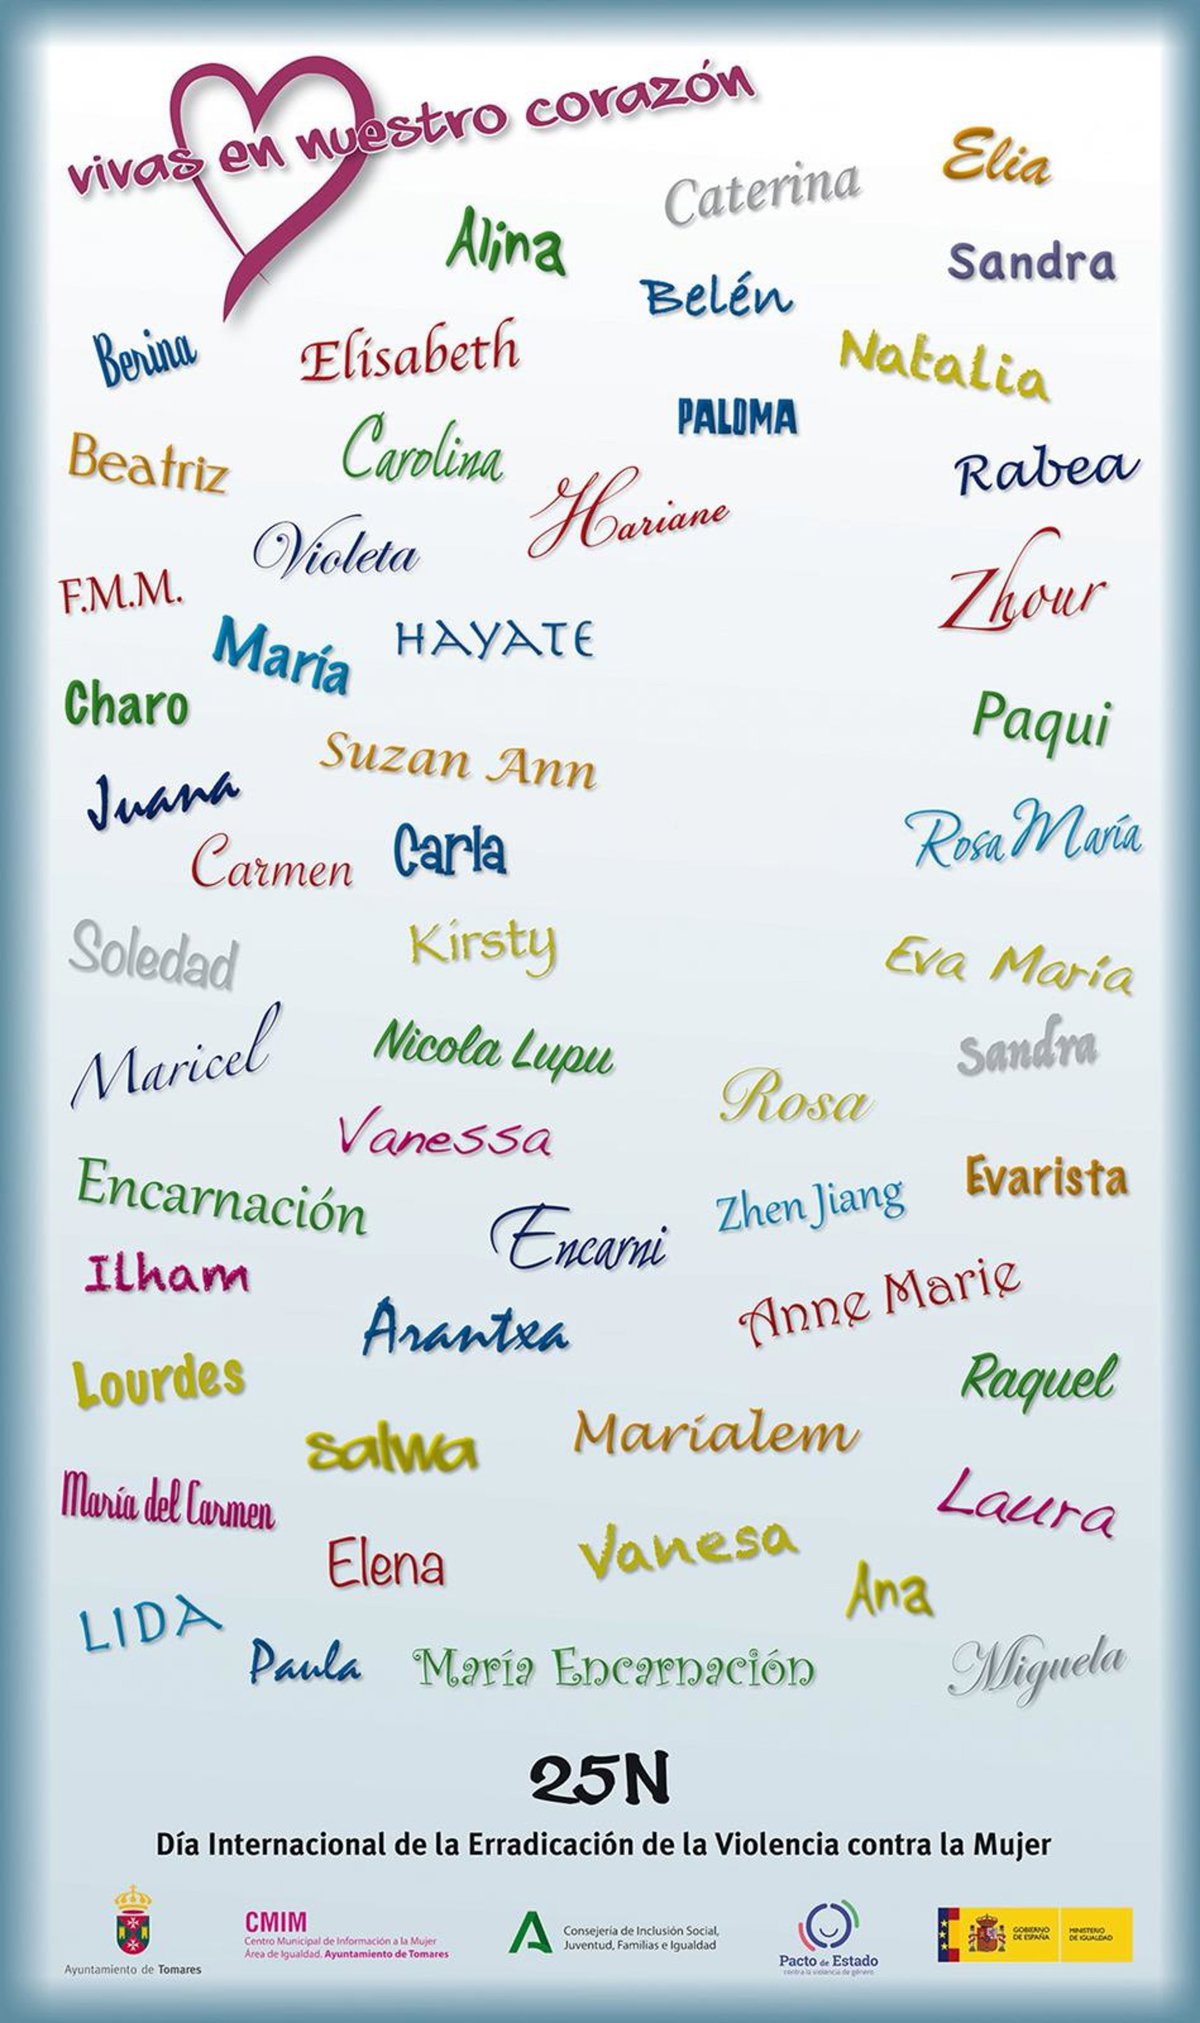 vivas en nuestro corazón
Elia
Caterina
Alina
Sandra
Belén
Berina
Elisabeth
Natalia
PALOMA
Beatriz
Carolina
Rabea
Hariane
Violeta
F.M.M.
Zhour
María
HAYATE
Charo
Paqui
Suzan Ann
Juana
Rosa María
Carmen
Carla
Soledad
Kirsty
Eva María
Maricel
Nicola Lupu
Sandra
Rosa
Vanessa
Encarnación
Evarista
Zhen Jiang
Encarni
Ilham
Anne Marie
Arantxa
Lourdes
Raquel
Salwa
Marialem
María del Carmen
Laura
Elena
Vanesa
Ana
LIDA
Paula
María Encarnación
Miguela
25N
Día Internacional de la Erradicación de la Violencia contra la Mujer
Ayuntamiento de Tomares
CMIM
Centro Municipal de Información a la Mujer
Área de Igualdad. Ayuntamiento de Tomares
Consejería de Inclusión Social,
Juventud, Familias e Igualdad
Pacto de Estado
contra la violencia de género
GOBIERNO
DE ESPAÑA
MINISTERIO
DE IGUALDAD